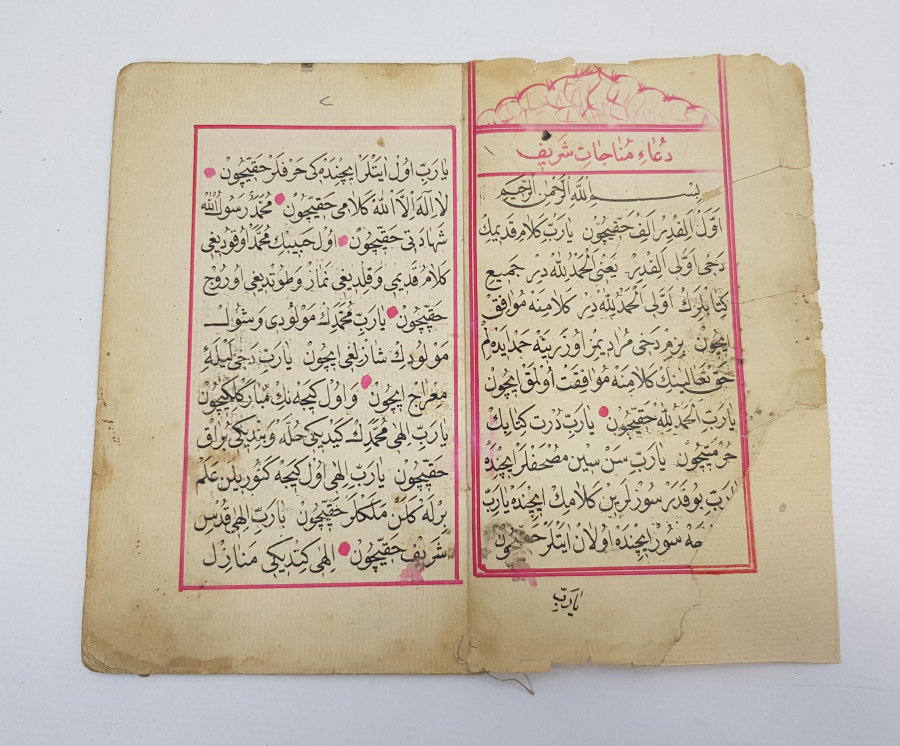 ١
دُعَاءِ مُنَاجَاتِ شَرِيفْ
بِسْمِ اللّٰهِ الرَّحْمٰنِ الرَّحِيمِ
اَوَّلَ اَلِفْدِرْ اَلِفْ حَقِّيچُونْ يَارَبِّ كَلَامِ قَدِيمِكْ
دَخِى اَوَّلِى اَلِفْدِرْ يَعْنِى اَلْحَمْدُ لِلّٰهِ دِرْ جَمِيعِ
كِتَابْلَرِكْ اَوَّلِى اَلْحَمْدُ لِلّٰهِ دِرْ كَلَامِنَه مُوَافِقْ
اِيچُونْ بِزِمْ دَخِى مُرَادِيمِزْ اُوزَرِينَه حَمْدْ ايدَه لِمْ
حَقْ تَعَالِينِكْ كَلَامِنَه مُوَافَقَتْ اُولْمَقْ اِيچُونْ
يَارَبِّ اَلْحَمْدُ لِلّٰهِ حَقِّيچُونْ يَارَبِّ دُرْتْ كِتَابِكْ
حُرْمَتِيچُونْ يَارَبِّ سَنْ سِينْ مُصْحَفْلَرْ اِيچِنْدَه
بُوقَدَرْ سُوزْلَرِينْ كَلَامِكْ اِيچِنْدَه يَارَبِّ
سُوزْ اِيچِنْدَه اُولَانْ ايَتْلَرْ
يَارَبِّ
٢
يَارَبِّ اُولْ ايَتْلَرْ اِيچِنْدَه كِى حَرْفْلَرْ حَقِّيچُونْ
لَا اِلٰهَ اِلَّا اللّٰهُ كَلَامِى حَقِّيچُونْ مُحَمَّدْ رَسُولُ اللّٰهْ
شَهَادَتِى حَقِّيچُونْ اُولْ حَبِيبِكْ مُحَمَّدْ اُوقُودِيغِى
كَلَامِ قَدِيمِى وَقِلْدِيغِى نَمَازْ وَطُوتْدِيغِى اُورُوجْ
حَقِّيچُونْ يَارَبِّ مُحَمَّدِكْ مَوْلُودِى وَشُولْ
مَوْلُودِكْ شَازِلْغِى اِيچُونْ يَارَبِّ دَخِى لَيْلَةِ
مِعْرَاجْ اِيچُونْ وَاُولْ كِيجَه نِكْ مُبَارَكْلِكِيچُونْ
يَارَبِّ اِلٰهِى مُحَمَّدِكْ كَيْدِيكِى حُلَّه وَبِنْدِيكِى بُرَاقْ
حَقِّيچُونْ يَارَبِّ اِلٰهِى اُولْ كِيجَه كَتُورِيلَنْ عَلَمْ
بِرْلَه كَلَنْ مَلَكْلَرْ حَقِّيچُونْ يَارَبِّ اِلٰهِى قُدْسِ
شَرِيفْ حَقِّيچُونْ اِلٰهِى كِنْدِيكِى مَنَازِلْ